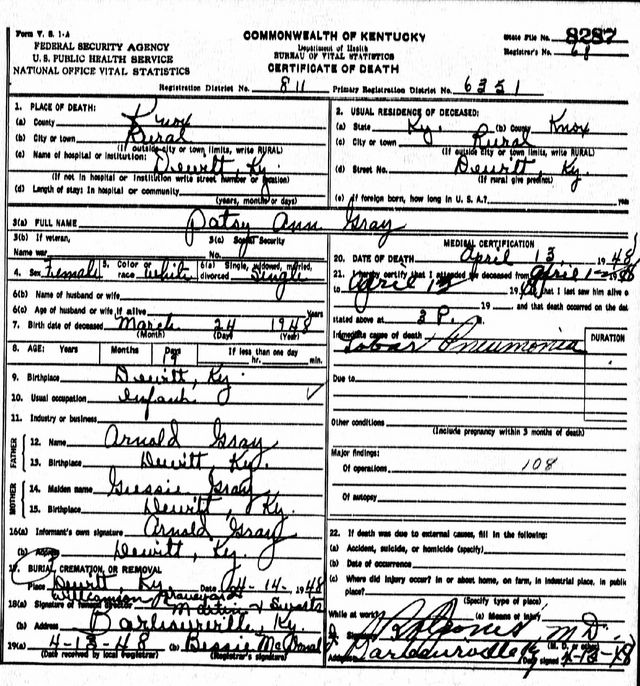 Form V. S. 1-A
FEDERAL SECURITY AGENCY
U. S. PUBLIC HEALTH SERVICE
NATIONAL OFFICE VITAL STATISTICS
COMMONWEALTH OF KENTUCKY
Department of Health
BUREAU OF VITAL STATISTICS
CERTIFICATE OF DEATH
State File No. 8287
Registrar's No. 68
Registration District No. 811 Primary Registration District No. 6351
1. PLACE OF DEATH:
(a) County Knox
(b) City or town Rural
(If outside city or town limits, write RURAL)
(c) Name of hospital or institution: Dewitt, Ky.
(If not in hospital or institution write street number or location)
(d) Length of stay: In hospital or community
(years, months or days)
2. USUAL RESIDENCE OF DECEASED:
(a) State Ky. (b) County Knox
(c) City or town Rural
(If outside city or town limits, write RURAL)
(d) Street No. Dewitt, Ky.
(If rural give precinct)
(e) If foreign born, how long in U. S. A.?
3(a) FULL NAME Patsy Ann Gray
3(b) If veteran,
Name war
3(c) Social Security
No.
4. Sex Female 5. Color or race White 6(a) Single, widowed, married, divorced Single
6(b) Name of husband or wife
6(c) Age of husband or wife if alive Years
7. Birth date of deceased March 24 1948
(Month) (Day) (Year)
8. AGE: Years Months Days If less than one day
hr. min.
9. Birthplace Dewitt, Ky.
10. Usual occupation infant
11. Industry or business
FATHER
12. Name Arnold Gray
13. Birthplace Dewitt Ky.
MOTHER
14. Maiden name Gussie Gray
15. Birthplace Dewitt, Ky.
16(a) Informant's own signature Arnold Gray
(b) Address Dewitt, Ky.
17. BURIAL, CREMATION, OR REMOVAL
Place Dewitt Ky Date 4-14- 1948
Graveyard
18(a) Signature of funeral director Martin &
(b) Address Barbourville, Ky.
19(a) 4-13-48 (b) Bessie McDonal
(Date received by local registrar) (Registrar's signature)
MEDICAL CERTIFICATION
20. DATE OF DEATH April 13, 1948
21. I hereby certify that I attended the deceased from April 1948
to April 1948 that I last saw him alive o
19 and that death occurred on the dat
stated above at 3 P. m.
Immediate cause of death DURATION
Lobar Pneumonia
Due to
Other conditions
(Include pregnancy within 3 months of death)
Major findings:
Of operations 108
Of autopsy
22. If death was due to external causes, fill in the following:
(a) Accident, suicide, or homicide (specify)
(b) Date of occurrence
(c) Where did injury occur? in or about home, on farm, in industrial place, in public
place?
(Specify type of place)
While at work? (e) Means of injury
Signature M D.
(M. D. or other)
Address Barbourville Ky Date signed 4-13-48